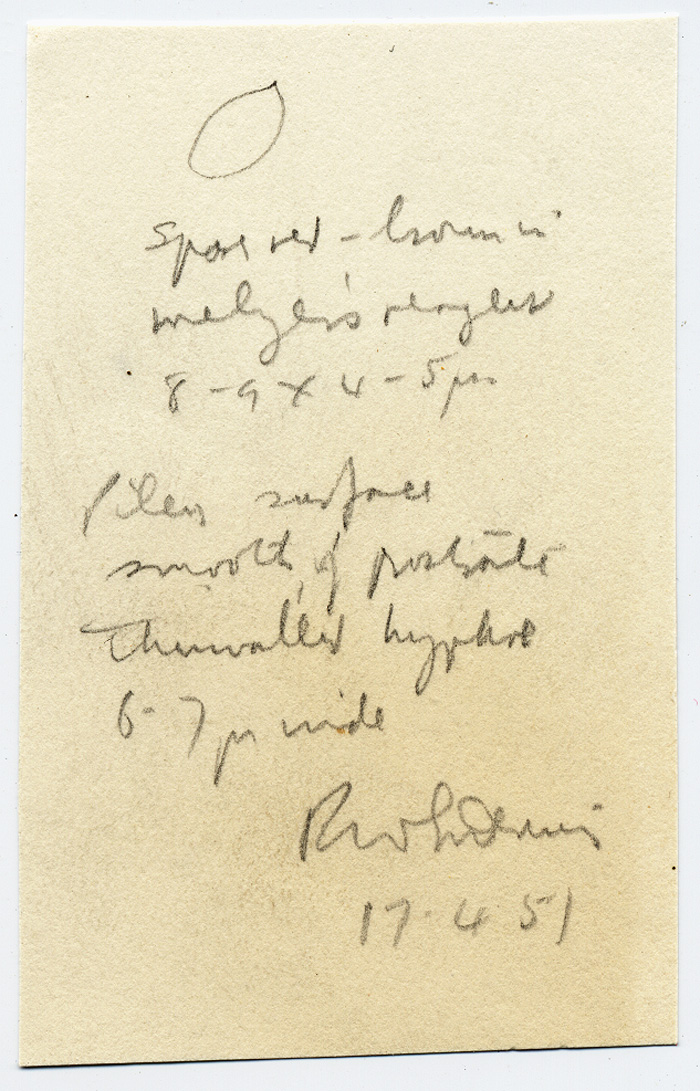 Spore red-brown in
melzer's reagent
8-9 x 4-5 µm
Pileus surface
smooth, of prostrate
thinwalled hyphae
6-7 µ wide
RWG Dennis
17.4 51